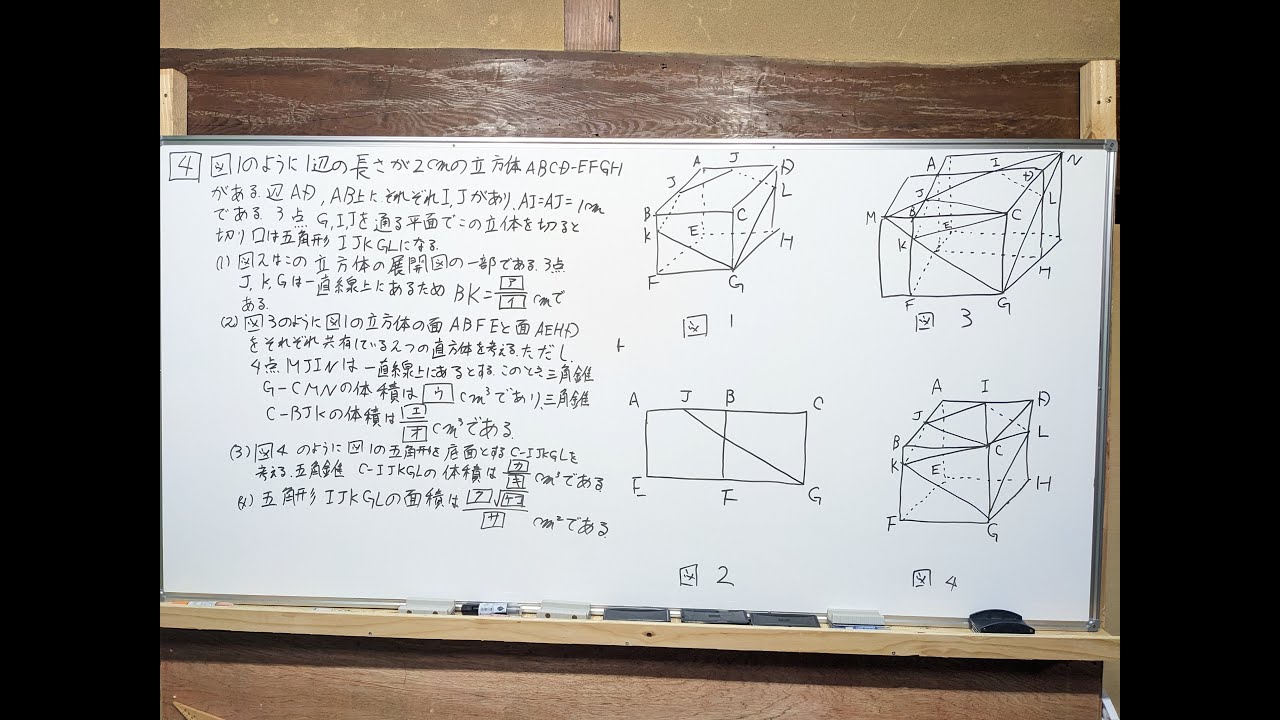 4 図1のように1辺の長さが2cmの立方体ABCD-EFGH
がある.辺AD,AB上にそれぞれI,Jがあり,AI=AJ=1cm
である.3点G,I,Jを通る平面でこの立体を切ると
切り口は五角形IJKGLになる.
(1) 図2はこの立方体の展開図の一部である.3点
J,K,Gは一直線上にあるため BK=ア/イ cmで
ある.
(2) 図3のように図1の立方体の面ABFEと面AEHD
をそれぞれ共有している2つの直方体を考える.ただし
4点MJINは一直線上にあるとする.このとき三角錐
G-CMNの体積はウcm³であり,三角錐
C-BJKの体積はエ/オcm³である.
(3) 図4のように図1の五角形を底面とするC-IJKGLを
考える.五角錐 C-IJKGLの体積はカ/キcm³である
(4) 五角形IJKGLの面積はク√ケコ/サ cm²である.
A
J
D
J
L
B
C
K
E
H
F
G
図1
A
I
N
D
J
L
M
B
C
K
E
H
F
G
図3
A
J
B
C
E
F
G
図2
A
I
D
J
L
B
C
K
E
H
F
G
図4